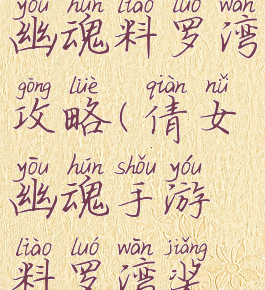 yōu hún liào luó wān
幽魂料罗湾
gōng lüè qiàn nǚ
攻略(倩女
yōu hún shǒu yóu
幽魂手游
liào luó wān jiǎng
料罗湾桨